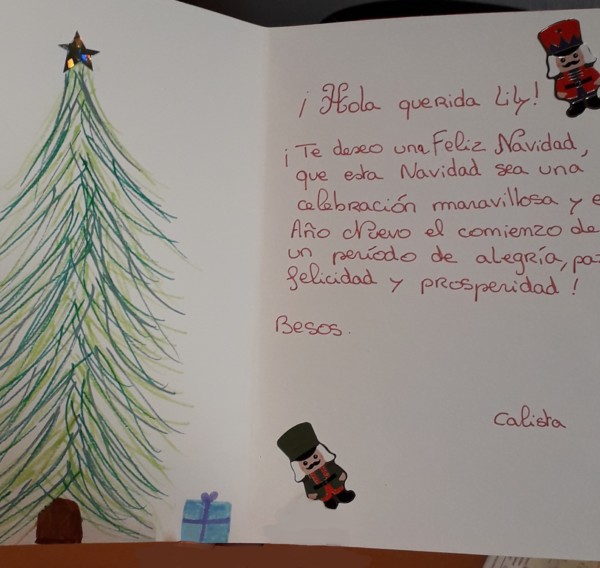 ¡ Hola querida Lily!
¡ Te deseo una Feliz Navidad,
que esta Navidad sea una
celebración maravillosa y e
Año Nuevo el comienzo de
un período de alegría, pa
felicidad y prosperidad !
Besos.
Calista